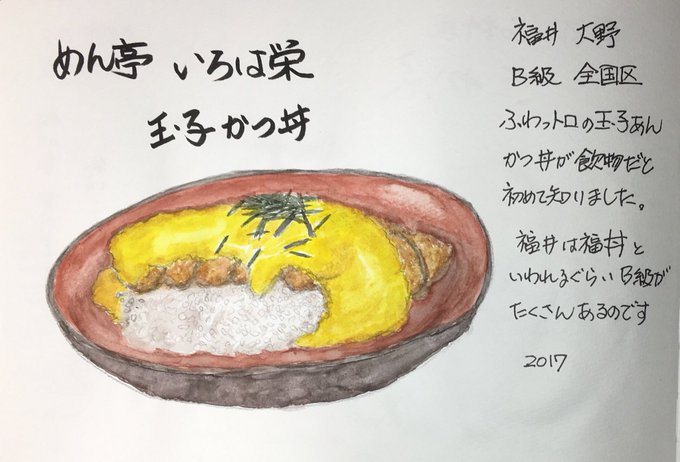 めん亭 いろは栄
玉子かつ丼
福井 大野
B級 全国区
ふわっトロの玉子あん
かつ丼が飲物だと
初めて知りました。
福井は福丼と
いわれるぐらいB級が
たくさんあるのです
2017